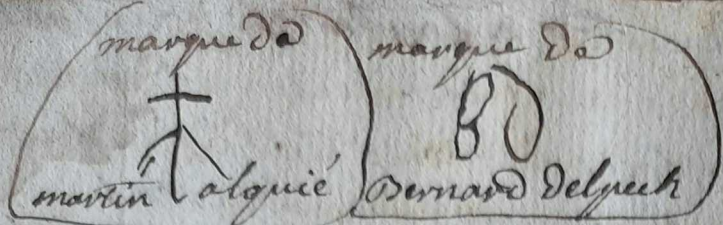 marque de
martin alquié
marque de
BD
Bernard delpech